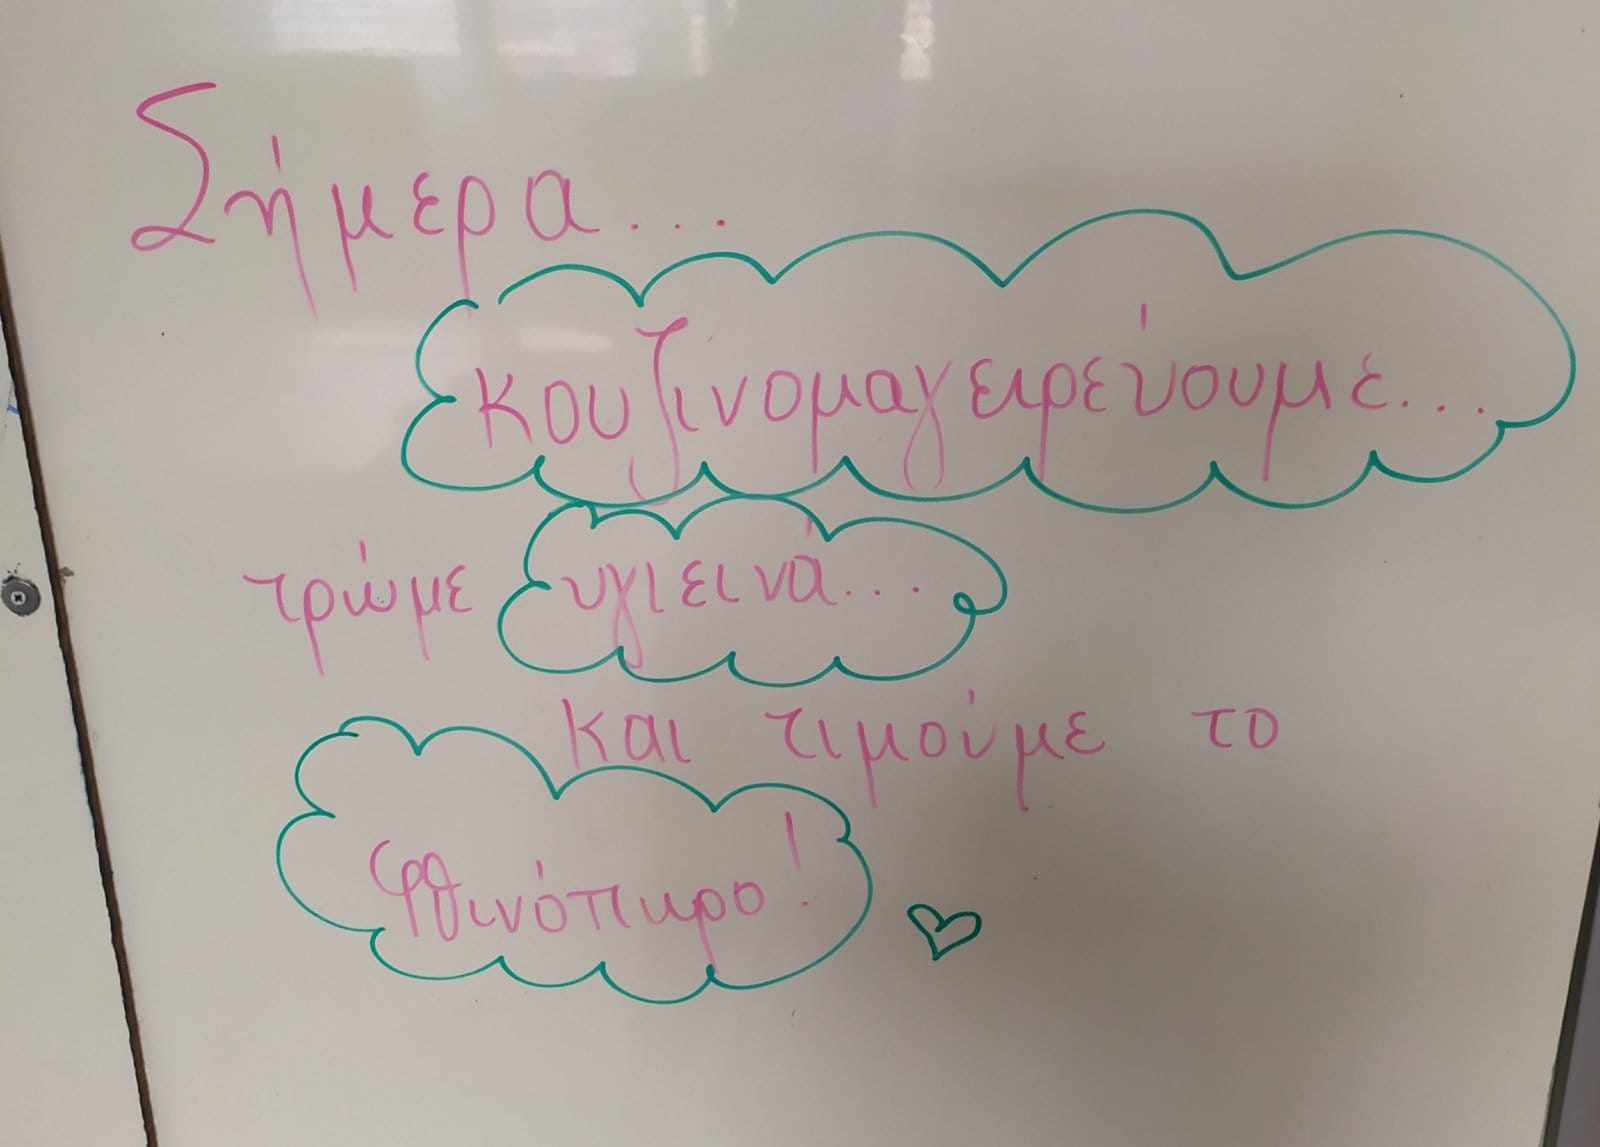 Σήμερα...
κουζινομαγειρεύουμε...
τρώμε υγιεινά...
και τιμούμε το
φθινόπωρο!